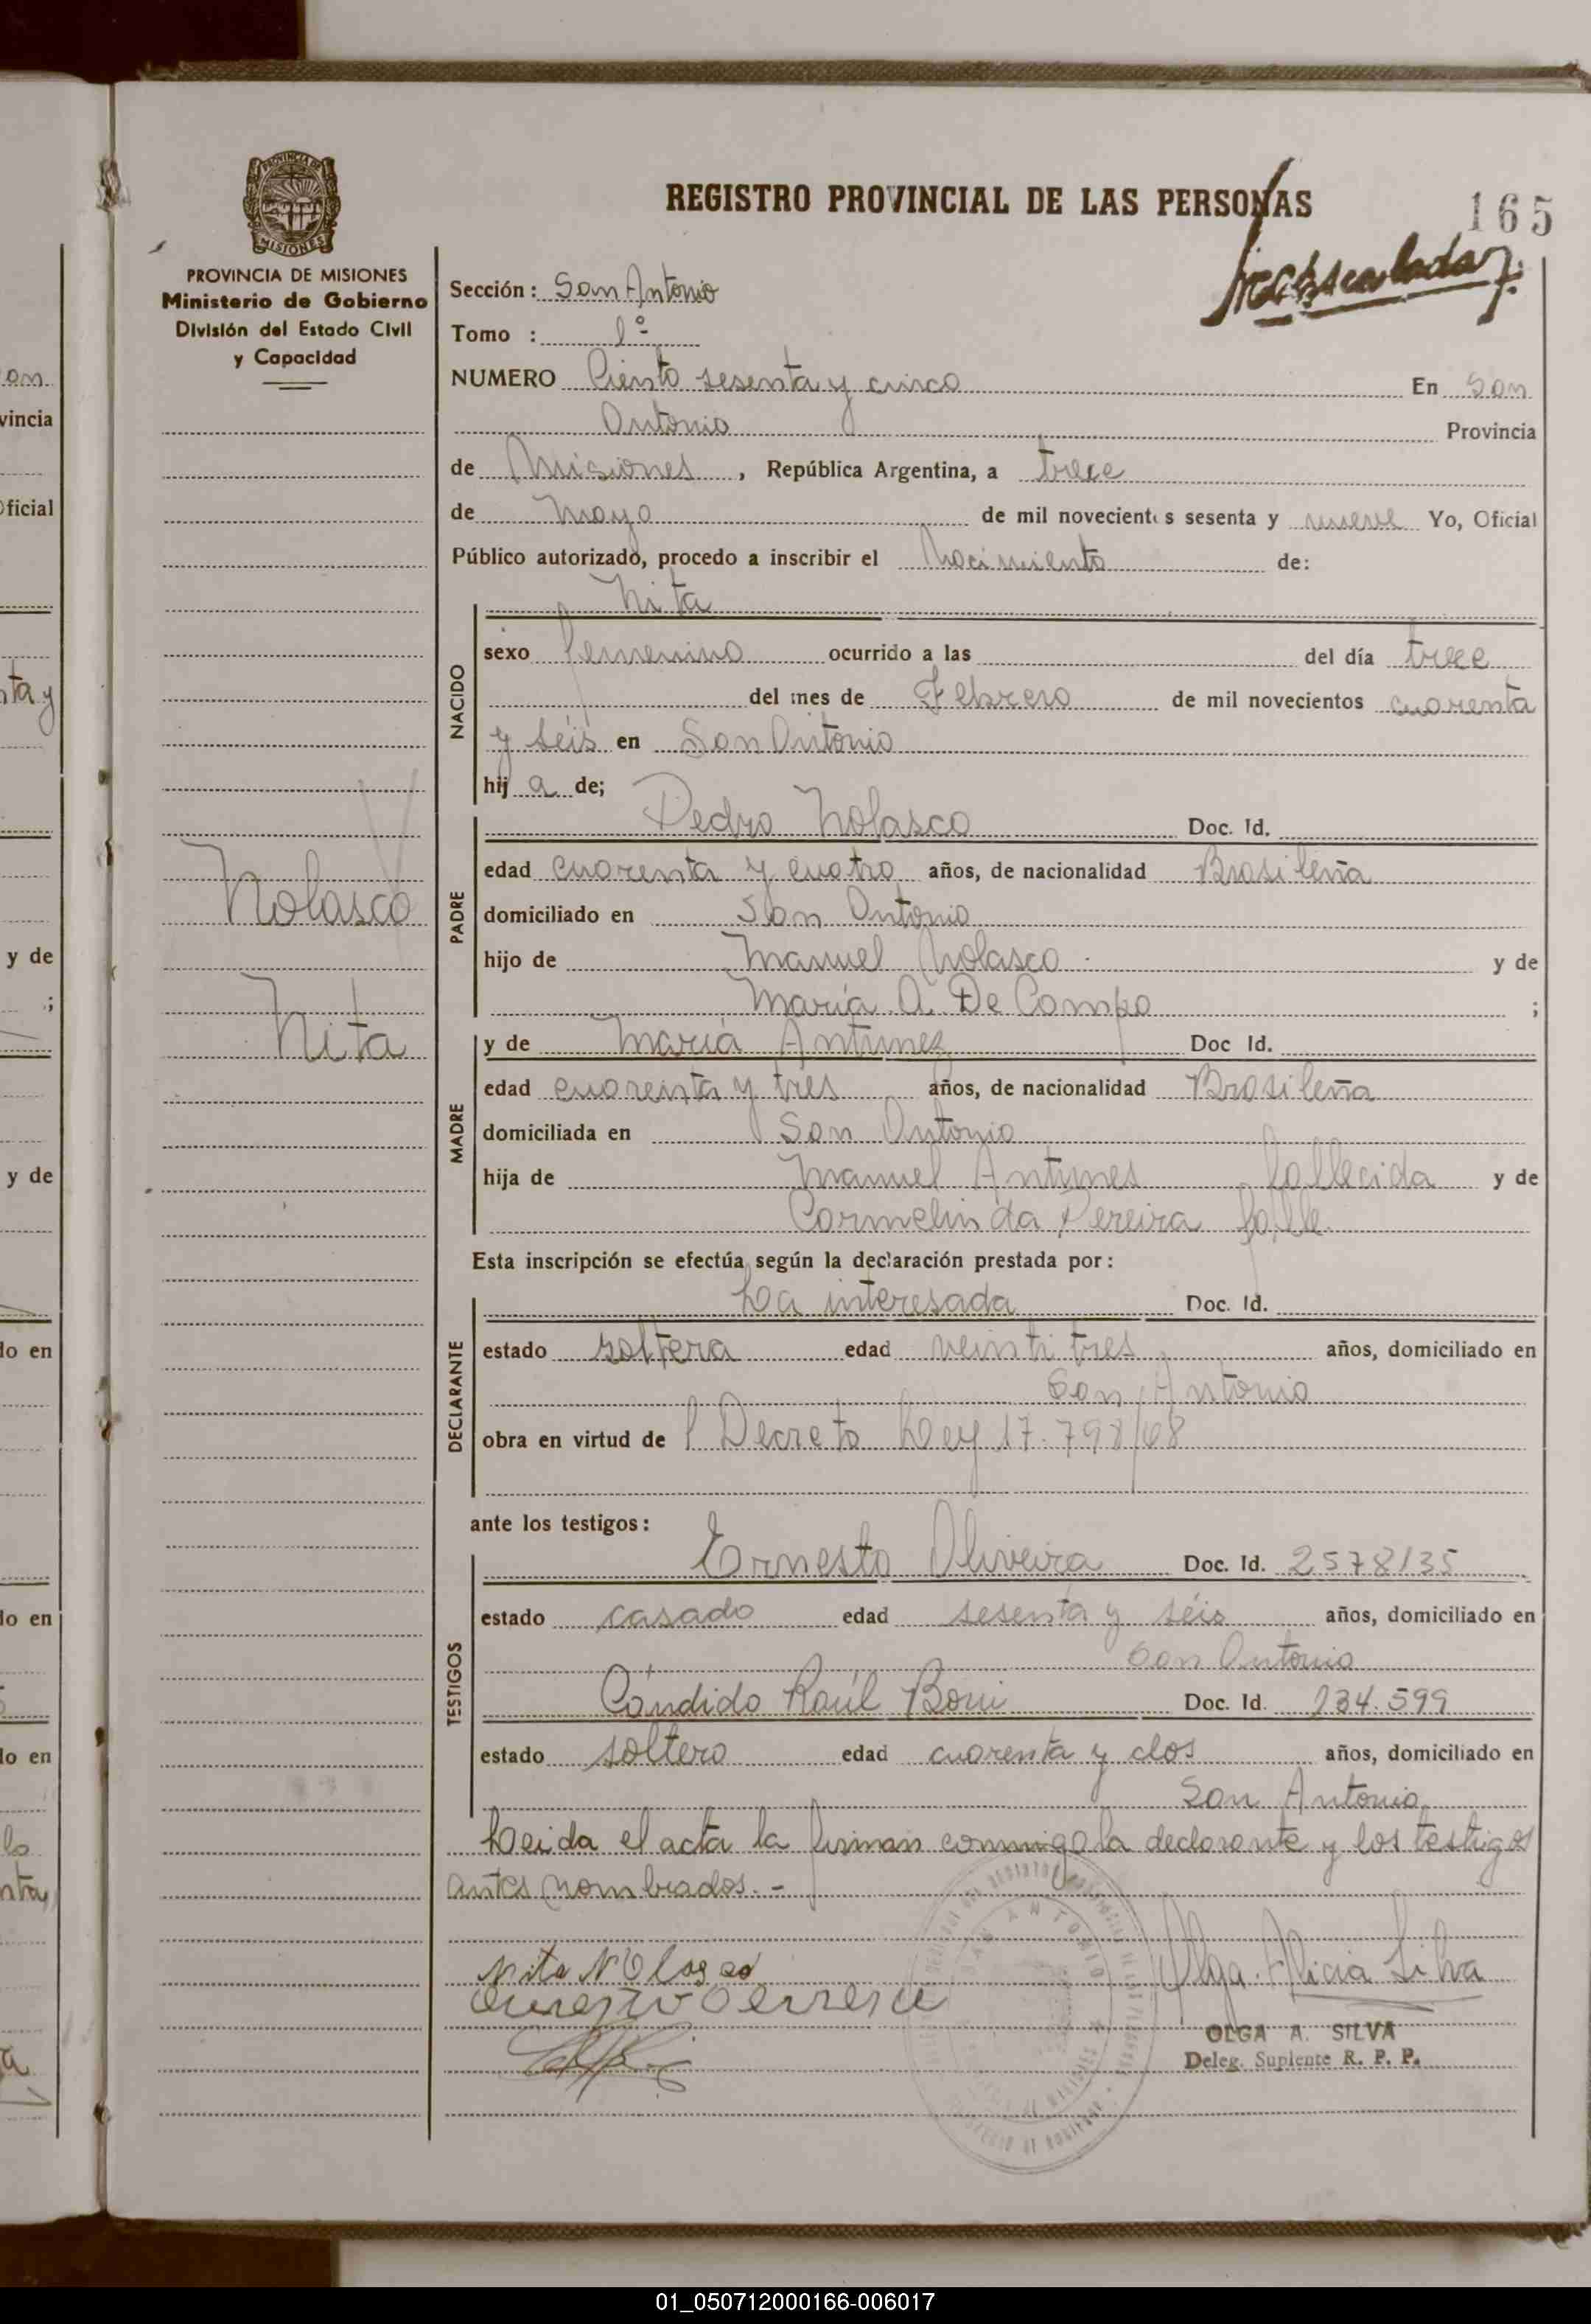 REGISTRO PROVINCIAL DE LAS PERSONAS
165
PROVINCIA DE MISIONES
Ministerio de Gobierno
División del Estado Civil
y Capacidad
Sección: San Antonio
Tomo : 1º
NUMERO Ciento sesenta y cinco En San
Antonio Provincia
de Misiones, República Argentina, a trece
de Mayo de mil novecientos sesenta y nueve Yo, Oficial
Público autorizado, procedo a inscribir el Nacimiento de:
Nita
NACIDO
sexo femenino ocurrido a las del día trece
del mes de Febrero de mil novecientos cuarenta
y séis en San Antonio
hija de;
Pedro Nolasco Doc. Id.
PADRE
edad cuarenta y cuatro años, de nacionalidad Brasileña
domiciliado en San Antonio
hijo de Manuel Nolasco y de
María A. De Campo ;
Nolasco
Nita
y de María Antunez Doc Id.
MADRE
edad cuarenta y tres años, de nacionalidad Brasileña
domiciliada en San Antonio
hija de Manuel Antunes fallecida y de
Carmelinda Pereira falle.
Esta inscripción se efectúa según la declaración prestada por:
La interesada Doc. Id.
DECLARANTE
estado soltera edad veinti tres años, domiciliado en
San Antonio
obra en virtud de Decreto Ley 17.798/68
ante los testigos:
Ernesto Oliveira Doc. Id. 2578135
TESTIGOS
estado casado edad sesenta y séis años, domiciliado en
San Antonio
Cándido Raúl Doc. Id. 234.599
estado soltero edad cuarenta y dos años, domiciliado en
San Antonio
Leida el acta la firman conmigo la declarante y los testigos
antes nombrados.-
Nita Nolasco
Olga Alicia Silva
OLGA A. SILVA
Deleg. Suplente R. P. P.
SAN ANTONIO
on
vincia
Oficial
nta y
y de
;
y de
do en
do en
do en
la
nta
a
01_050712000166-006017